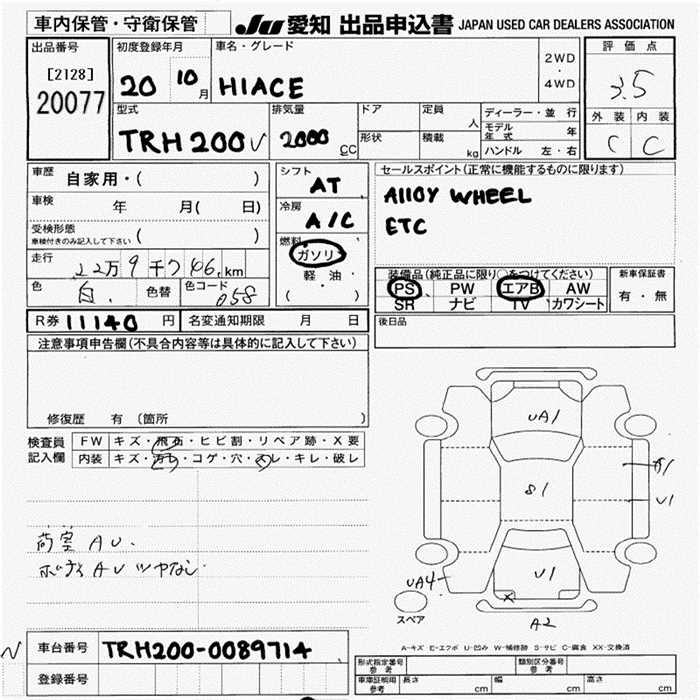 車内保管・守衛保管
JU 愛知 出品申込書 JAPAN USED CAR DEALERS ASSOCIATION
出品番号
[2128]
20077
初度登録年月
20 10月
車名・グレード
HIACE
2WD
・
4WD
評価点
3.5
外装 内装
C C
型式
TRH200V
排気量
2000 CC
ドア
形状
定員 人
積載 kg
ディーラー・並行
モデル年式 年
ハンドル 左・右
車歴 自家用・( )
車検 年 月( 日)
受検形態
車検付きのみ記入して下さい ( )
走行 22万9千766km
色 白 色替 色コード 058
シフト
AT
冷房
A/C
燃料
ガソリン
軽油
( ・ )
セールスポイント(正常に機能するものに限ります)
Alloy WHEEL
ETC
装備品(純正品に限り○をつけてください)
PS PW エアB AW
SR ナビ TV カワシート
新車保証書
有・無
R券 11140 円
名変通知期限 月 日
後日品
注意事項申告欄(不具合内容等は具体的に記入して下さい)
修復歴 有 (箇所 )
検査員
記入欄
FW キズ・飛石・ヒビ割・リペア跡・X要
内装 キズ・汚れ・コゲ・穴・スレ・キレ・破レ
荷室 AU.
ボディAUツヤなし
UA1
S1
A1
U1
U1
X
UA4
A2
スペア
A-キズ E-エクボ U-凹み W-補修跡 S-サビ C-腐食 XX-交換済
車台番号 TRH200-0089714
登録番号
形式指定番号
参考
類別区分番号
参考
車庫証明用
参考
長さ cm
幅 cm
高さ cm